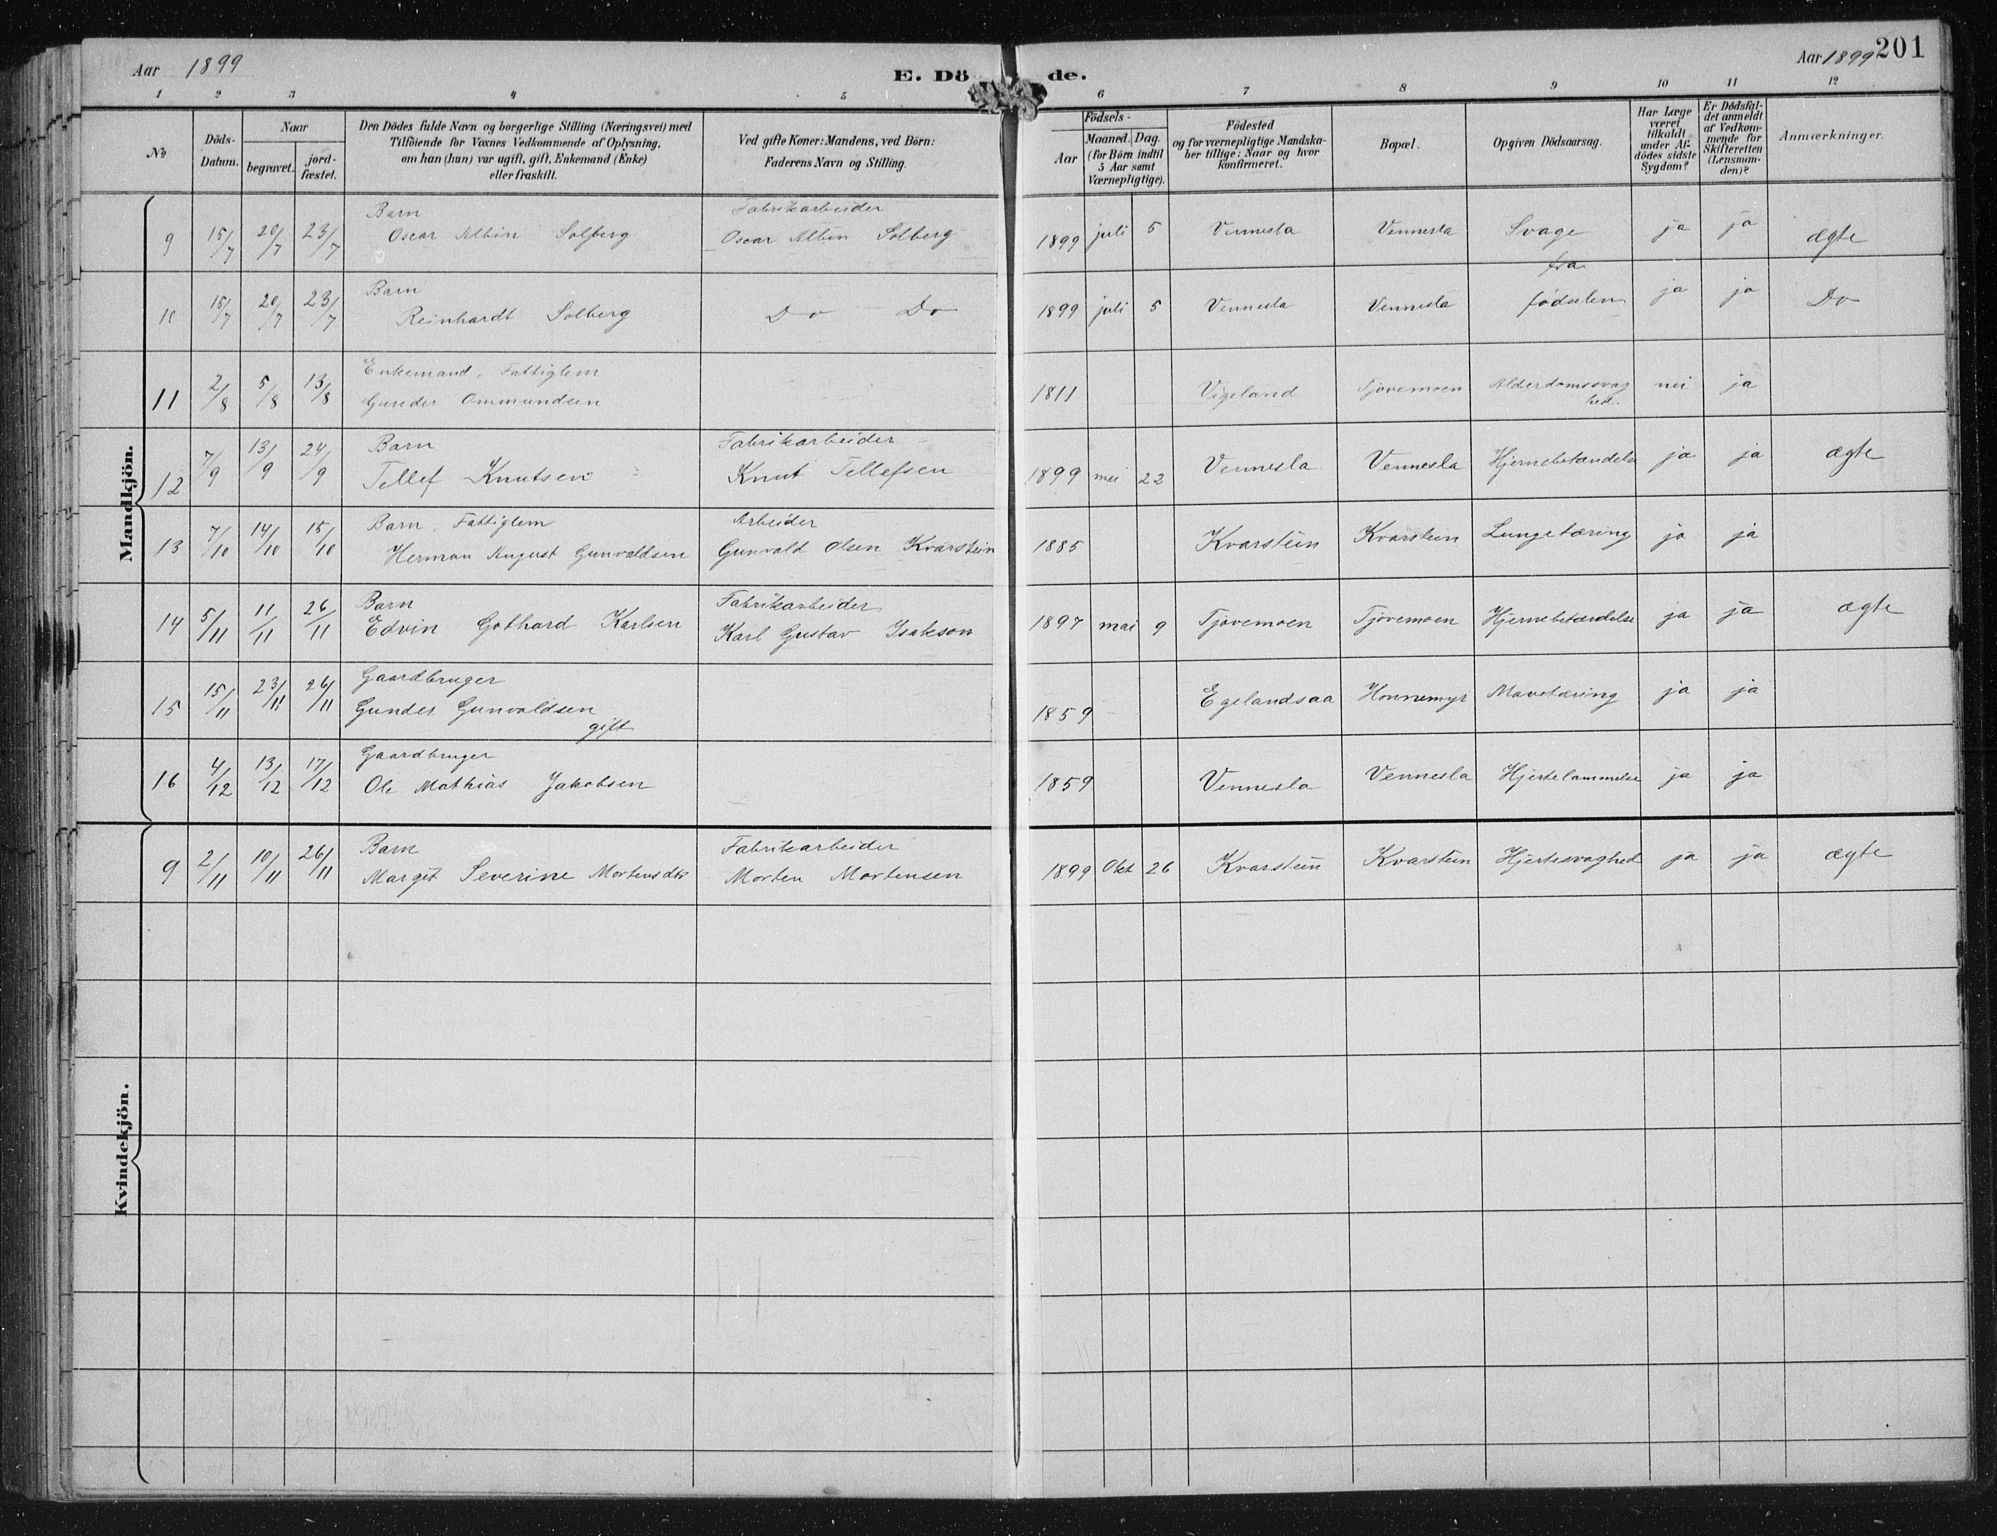 Aar 1899
E. Dö de.
Aar 1899 201
1 2 3 4 5 6 7 8 9 10 11 12
No
Döds-Datum.
Naar
begravet.
jord-fæstet.
Den Dödes fulde Navn og borgerlige Stilling (Næringsvei) med
Tilföiende for Voxnes Vedkommende af Oplysning,
om han (hun) var ugift, gift, Enkemand (Enke)
eller fraskilt.
Ved gifte Koner: Mandens, ved Börn:
Faderens Navn og Stilling.
Födsels-
Aar
Maaned. Dag.
(for Börn indtil
5 Aar samt
Værnepligtige).
Födested
og for værnepligtige Mandska-
ber tillige: Naar og hvor
konfirmeret.
Bopæl.
Opgiven Dödsaarsag.
Har Læge
været
tilkaldt
under Af-
dödes sidste
Sygdom?
Er Dödsfal-
det anmeldt
af Vedkom-
mende for
Skifteretten
(Lensman-
den)?
Anmærkninger.
Mandkjön.
Barn Fabrikarbeider
9 15/7 20/7 23/7 Oscar Albin Solberg Oscar Albin Solberg 1899 juli 5 Vennesla Vennesla Svage ja ja ægte
fra
Barn
10 15/7 20/7 23/7 Reinhardt Solberg Do Do 1899 juli 5 Vennesla Vennesla fødselen ja ja Do
Enkemand, Fattiglem
11 2/8 5/8 13/8 Gunder Ommundsen 1811 Vigeland Tjovemoen Alderdomssvag nei ja
hed.
Barn Fabrikarbeider
12 7/9 13/9 24/9 Tellef Knutsen Knut Tellefsen 1899 mai 22 Vennesla Vennesla Hjernebetændelse ja ja ægte
Barn, Fattiglem Arbeider
13 7/10 14/10 15/10 Herman August Gunvaldsen Gunvald Olsen Kvarstein 1885 Kvarstein Kvarstein Lungetæring ja ja
Barn Fabrikarbeider
14 5/11 11/11 26/11 Edvin Gothard Karlsen Karl Gustav Isakson 1897 mai 9 Tjovemoen Tjovemoen Hjernebetændelse ja ja ægte
Gaardbruger
15 15/11 23/11 26/11 Gunder Gunvaldsen 1859 Egelandsaa Honnemyr Mavetæring ja ja
gift
Gaardbruger
16 4/12 13/12 17/12 Ole Mathias Jakobsen 1859 Vennesla Vennesla Hjertelammelse ja ja
Kvindekjön.
Barn Fabrikarbeider
9 2/11 10/11 26/11 Margit Severine Mortensdtr Morten Mortensen 1899 Okt 26 Kvarstein Kvarstein Hjertesvaghed ja ja ægte